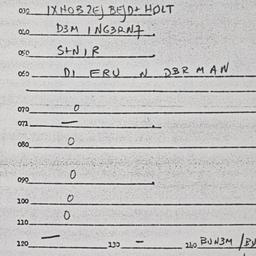 030 IXHOB2EJ BEJD+ HOLT
040 D3M ING3RN7.
050 S+NIR
060 DI ERU N DBR MAN
070 0
071 —
080 0
090 0
100 0
110 0
120 — 130 — 210 BUN3M /BU